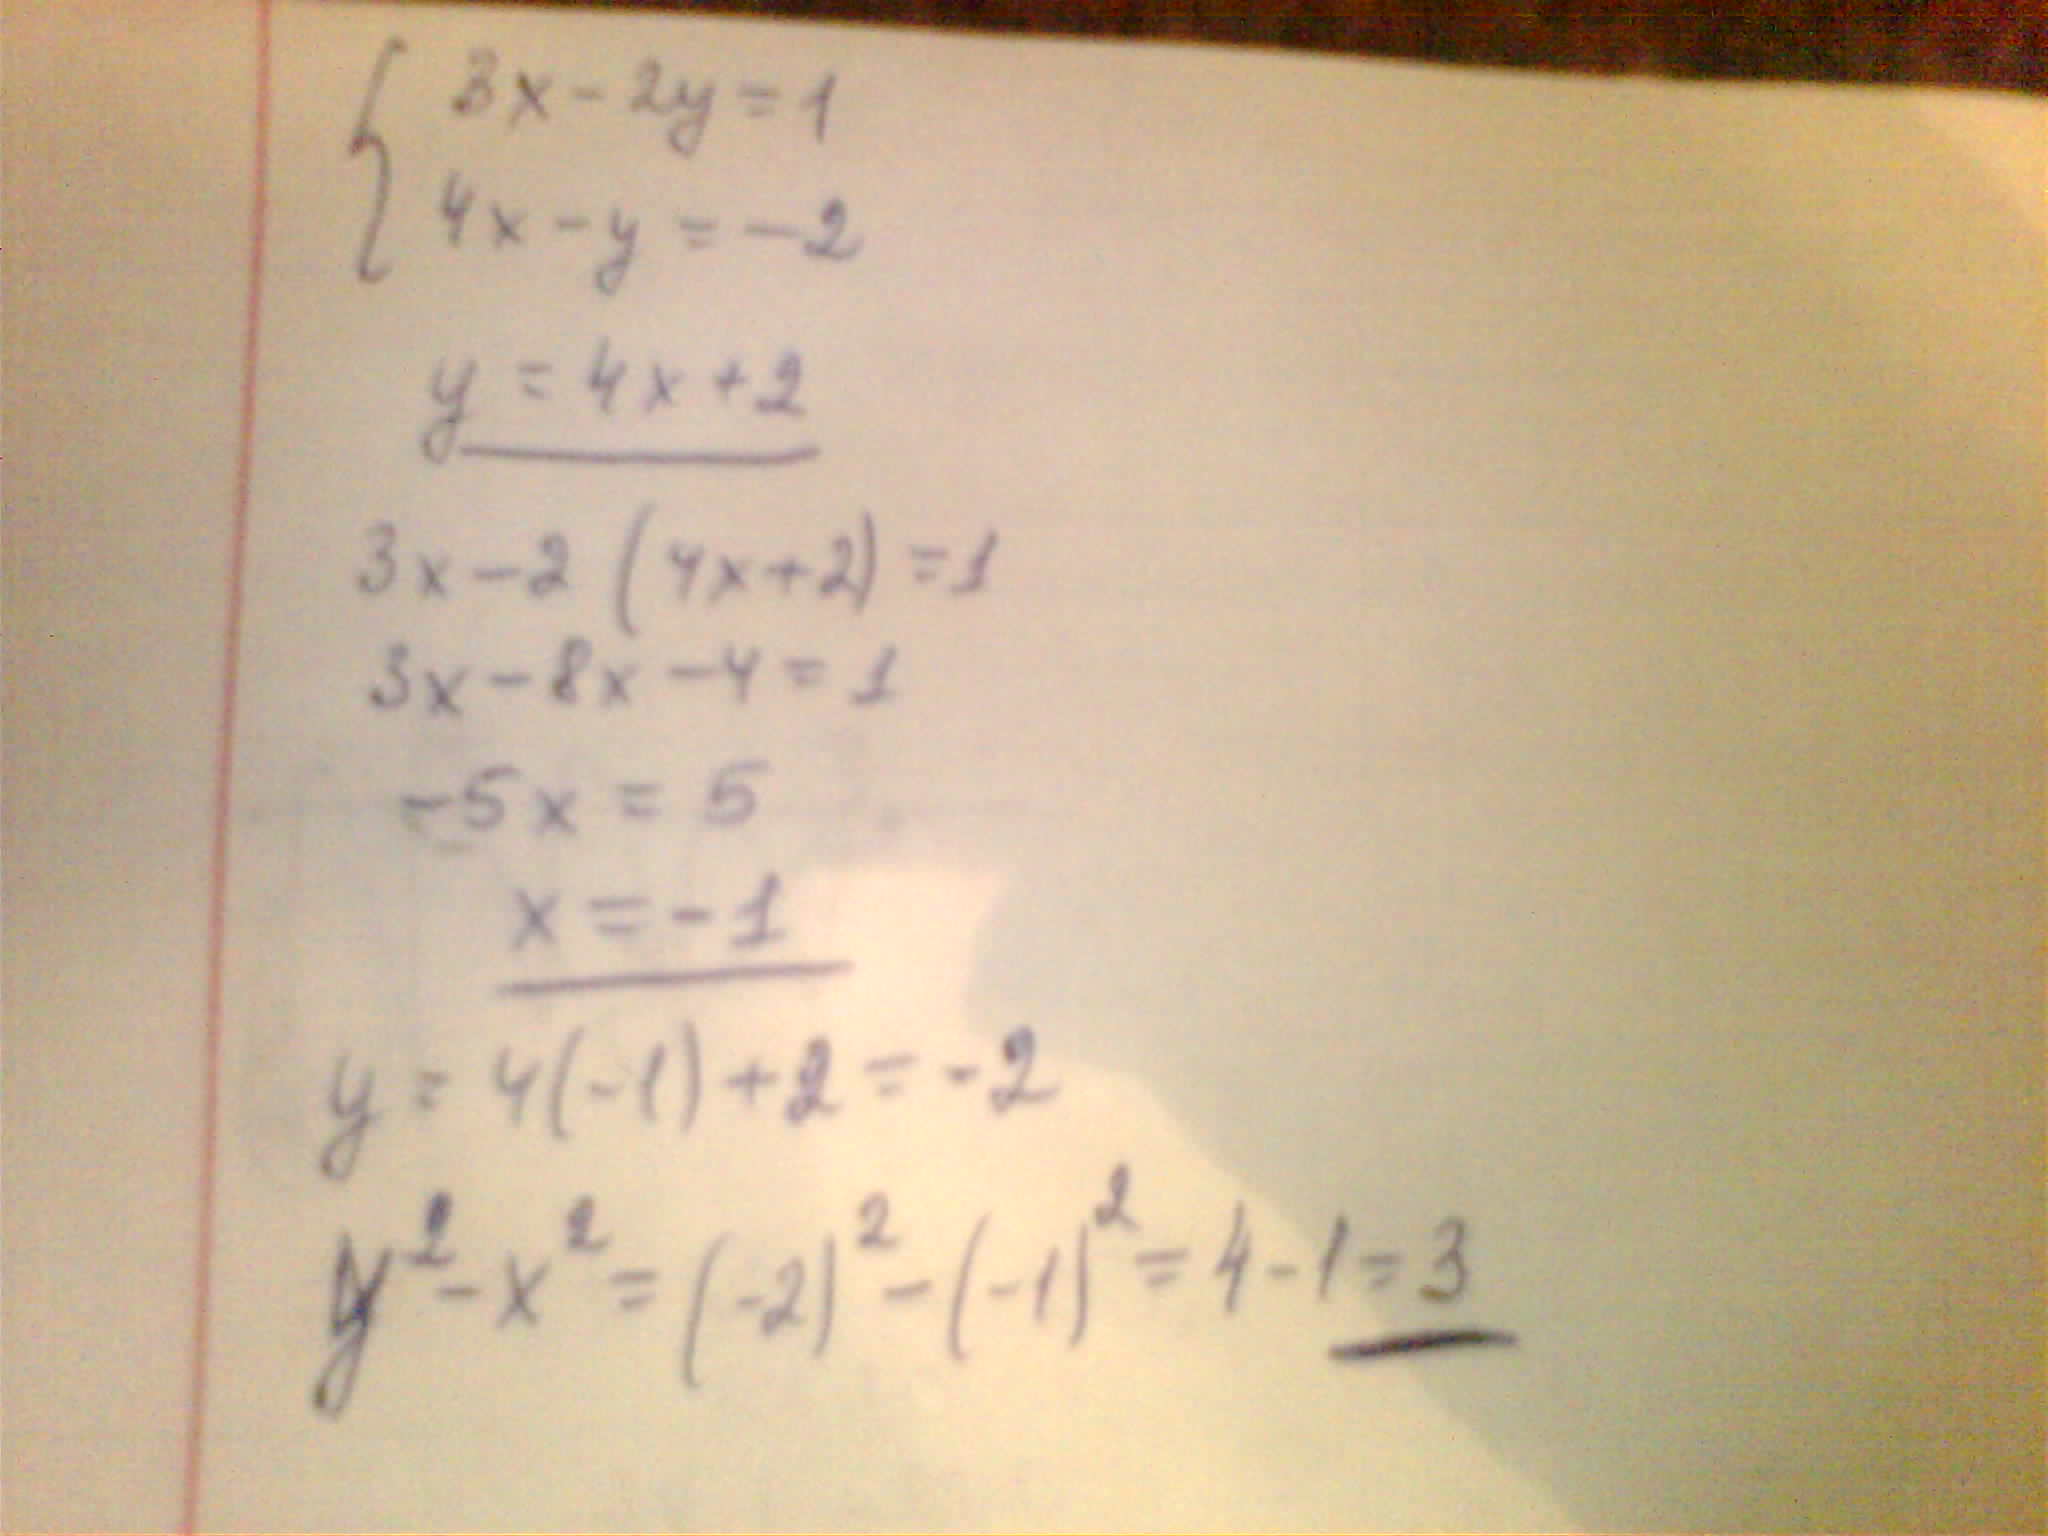 { 3x - 2y = 1
4x - y = -2
y = 4x + 2
3x - 2 (4x + 2) = 1
3x - 8x - 4 = 1
-5x = 5
x = -1
y = 4(-1) + 2 = -2
y² - x² = (-2)² - (-1)² = 4 - 1 = 3